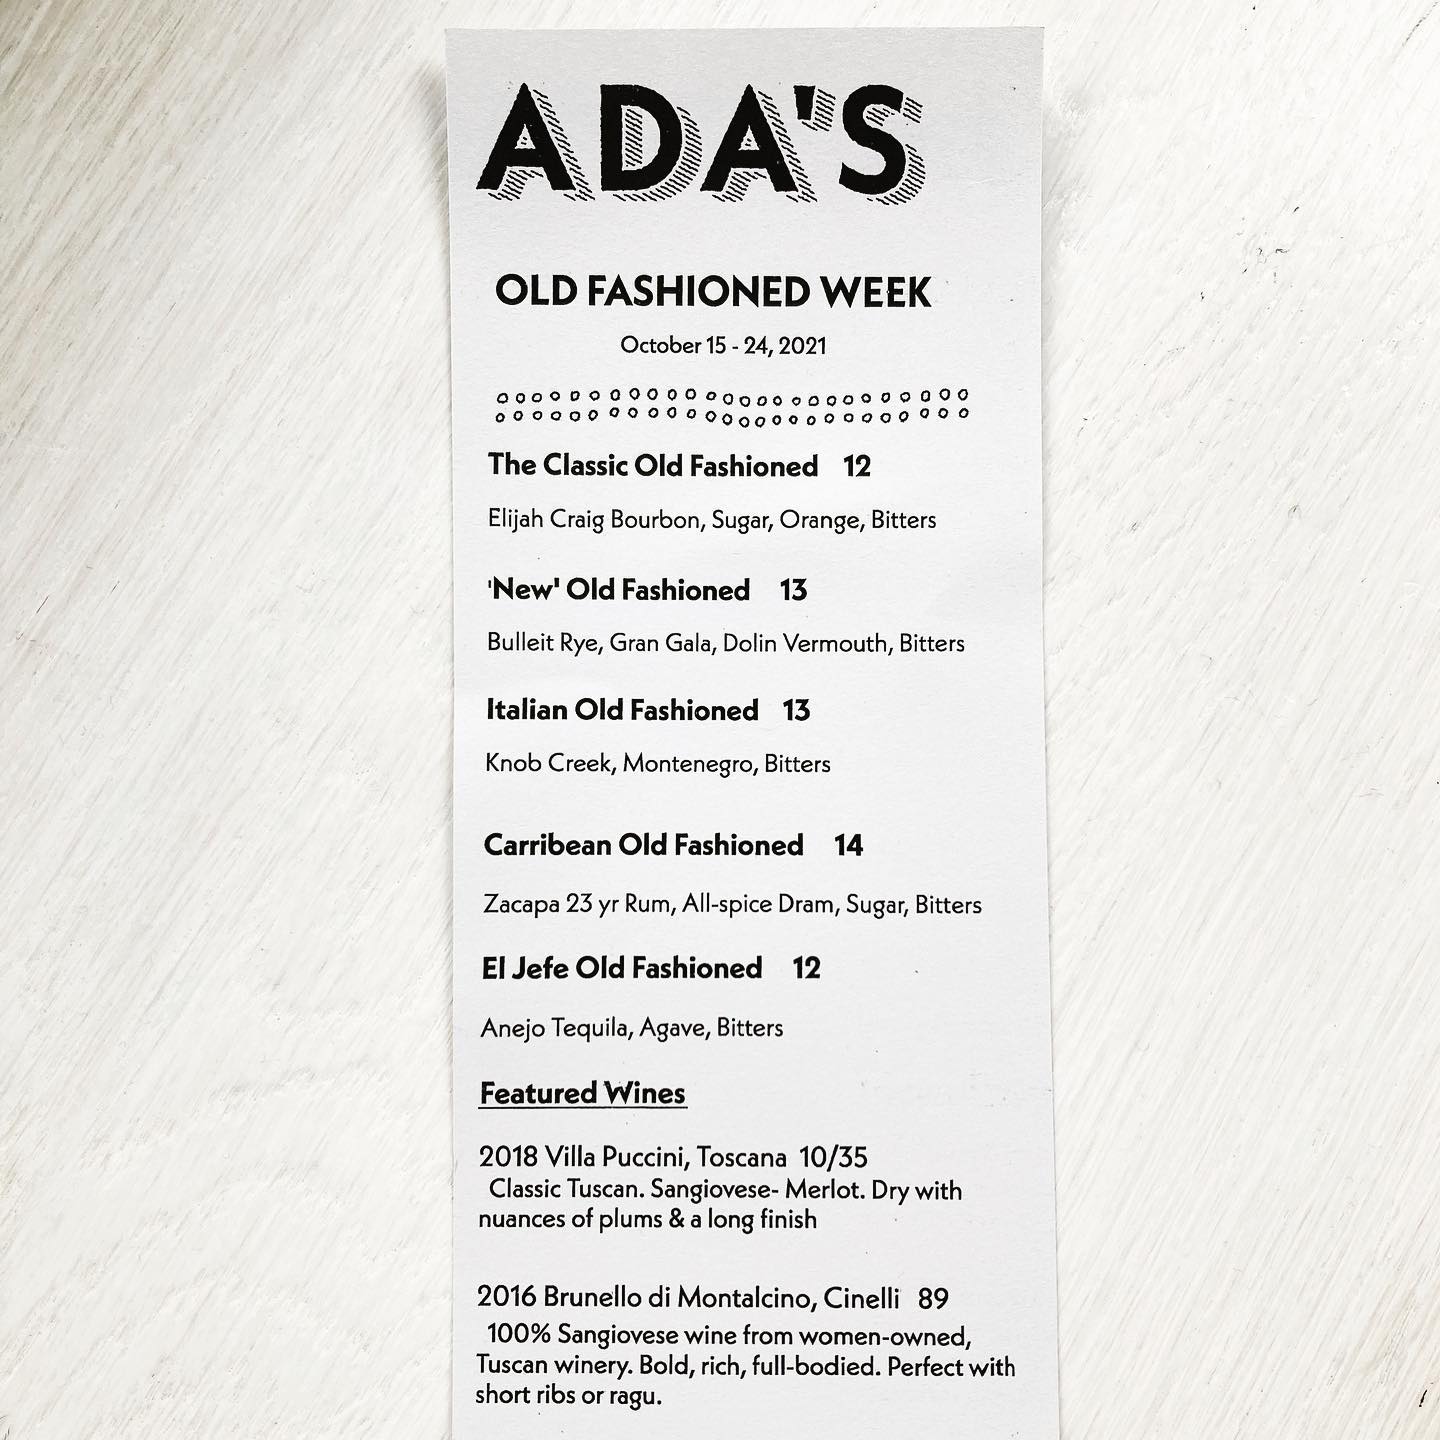 ADA'S
OLD FASHIONED WEEK
October 15 - 24, 2021
The Classic Old Fashioned 12
Elijah Craig Bourbon, Sugar, Orange, Bitters
'New' Old Fashioned 13
Bulleit Rye, Gran Gala, Dolin Vermouth, Bitters
Italian Old Fashioned 13
Knob Creek, Montenegro, Bitters
Carribean Old Fashioned 14
Zacapa 23 yr Rum, All-spice Dram, Sugar, Bitters
El Jefe Old Fashioned 12
Anejo Tequila, Agave, Bitters
Featured Wines
2018 Villa Puccini, Toscana 10/35
Classic Tuscan. Sangiovese- Merlot. Dry with
nuances of plums & a long finish
2016 Brunello di Montalcino, Cinelli 89
100% Sangiovese wine from women-owned,
Tuscan winery. Bold, rich, full-bodied. Perfect with
short ribs or ragu.